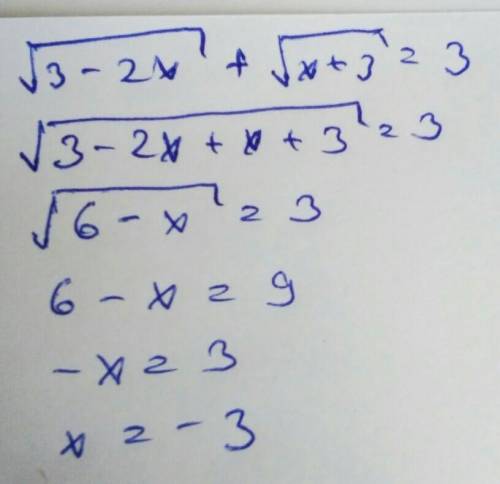 √3 - 2x + √x + 3 = 3
√3 - 2x + x + 3 = 3
√6 - x = 3
6 - x = 9
- x = 3
x = - 3